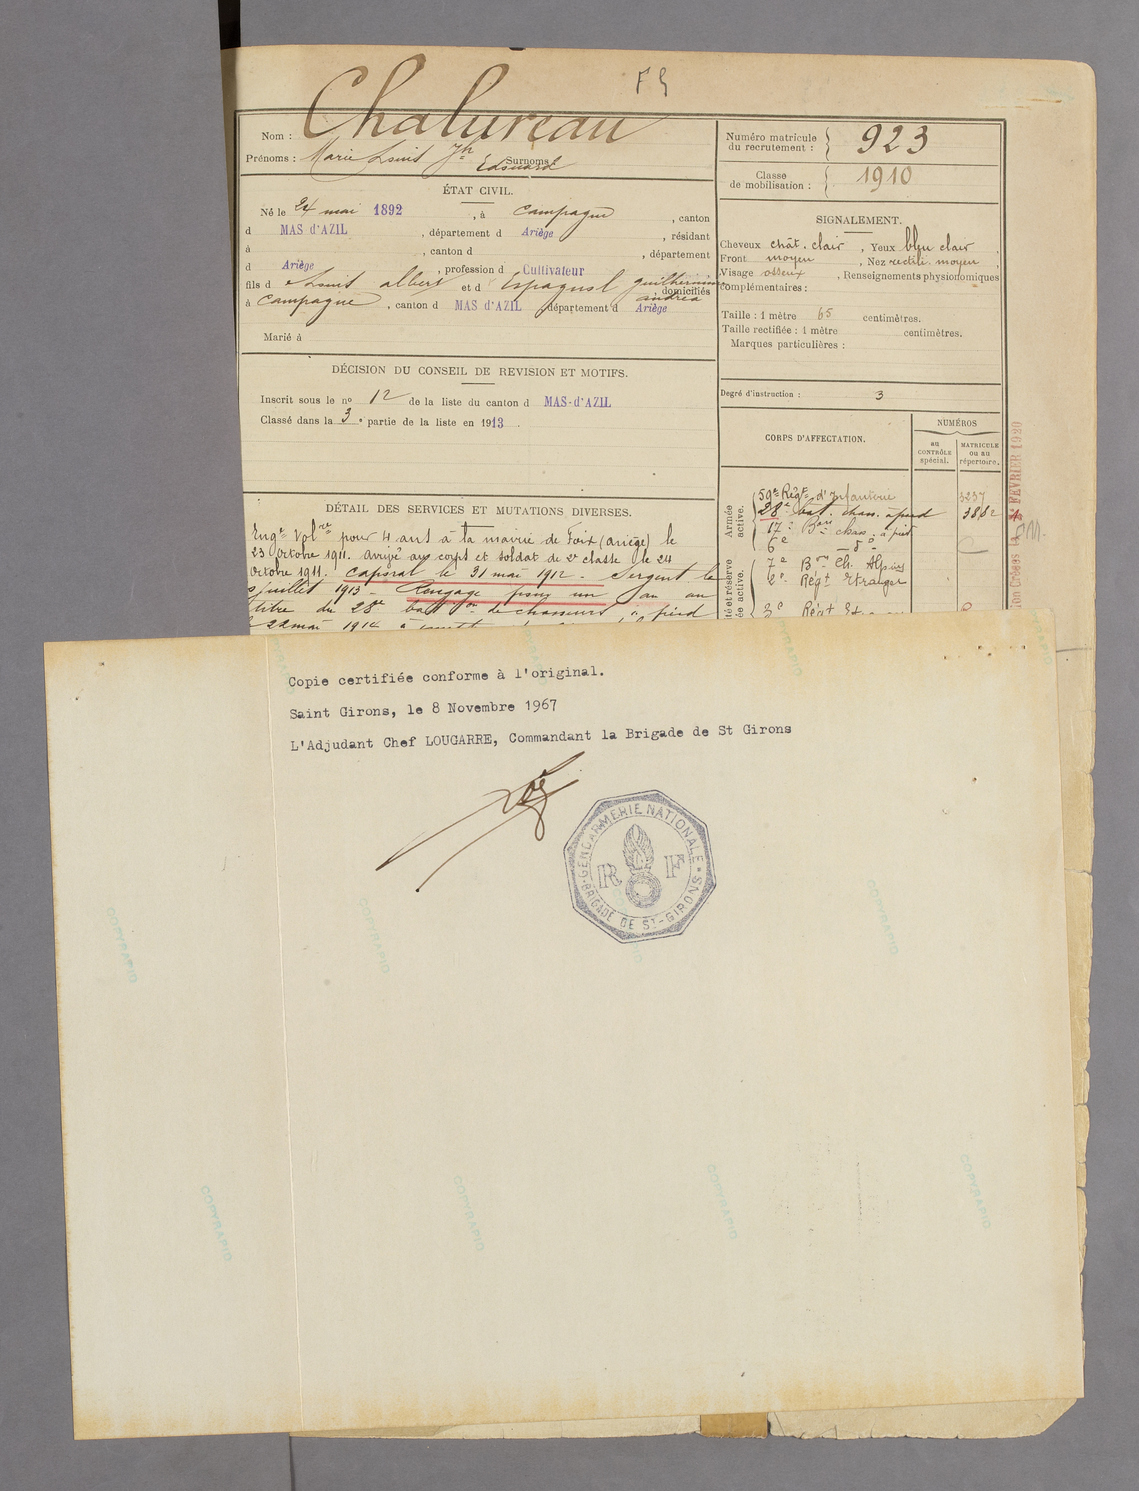 F 9
Nom : Chalureau
Prénoms : Marie Louis Jh Edouard
Surnoms :
Numéro matricule du recrutement : 923
Classe de mobilisation : 1910
ÉTAT CIVIL.
Né le 24 mai 1892, à Campagne, canton
d MAS d'AZIL, département d Ariège, résidant
à , canton d , département
d Ariège, profession d Cultivateur
fils d Louis albert et d Espagnol guilhermine andréa domiciliés
à Campagne, canton d MAS d'AZIL, département d Ariège
Marié à
SIGNALEMENT.
Cheveux chât. clair, Yeux bleu clair,
Front moyen, Nez rectili. moyen,
Visage osseux, Renseignements physionomiques
complémentaires :
Taille : 1 mètre 65 centimètres.
Taille rectifiée : 1 mètre centimètres.
Marques particulières :
DÉCISION DU CONSEIL DE REVISION ET MOTIFS.
Inscrit sous le nº 12 de la liste du canton d MAS-d'AZIL
Classé dans la 3e partie de la liste en 1913.
Degré d'instruction : 3
CORPS D'AFFECTATION.
NUMÉROS
au CONTRÔLE spécial.
MATRICULE ou au répertoire.
Armée active.
59e Régt d'Infanterie 3237
28e bat. chas. à pied 3882
17e Bon chas. à pied
6e — do
7e Bon Ch. Alpins
2e Régt Etranger
3e Régt Et
te et réserve
ée active.
FEVRIER 1920
DÉTAIL DES SERVICES ET MUTATIONS DIVERSES.
Engé Volre pour 4 ans à la mairie de Foix (ariège) le
23 Octobre 1911. arrivé au corps et soldat de 2e classe le 24
Octobre 1911. Caporal le 31 mai 1912 - Sergent le
juillet 1913 - Rengagé pour un an au
titre du 28e baton de chasseurs à pied
22 mai 1914 à
Copie certifiée conforme à l'original.
Saint Girons, le 8 Novembre 1967
L'Adjudant Chef LOUGARRE, Commandant la Brigade de St Girons
GENDARMERIE NATIONALE
R F
BRIGADE DE ST-GIRONS
COPYRAPID
COPYRAPID
COPYRAPID
COPYRAPID
COPYRAPID
COPYRAPID
COPYRAPID